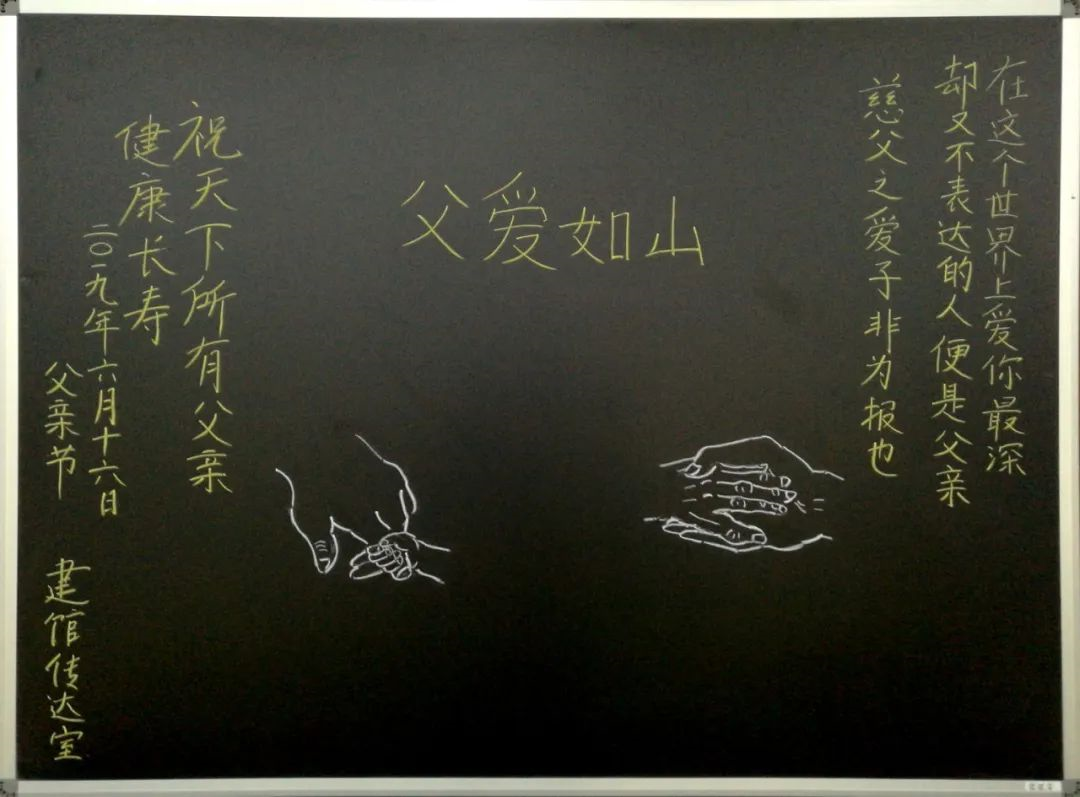 在这个世界上爱你最深
却又不表达的人便是父亲
慈父之爱子非为报也
父爱如山
祝天下所有父亲
健康长寿
二〇一九年六月十六日
父亲节
建馆传达室